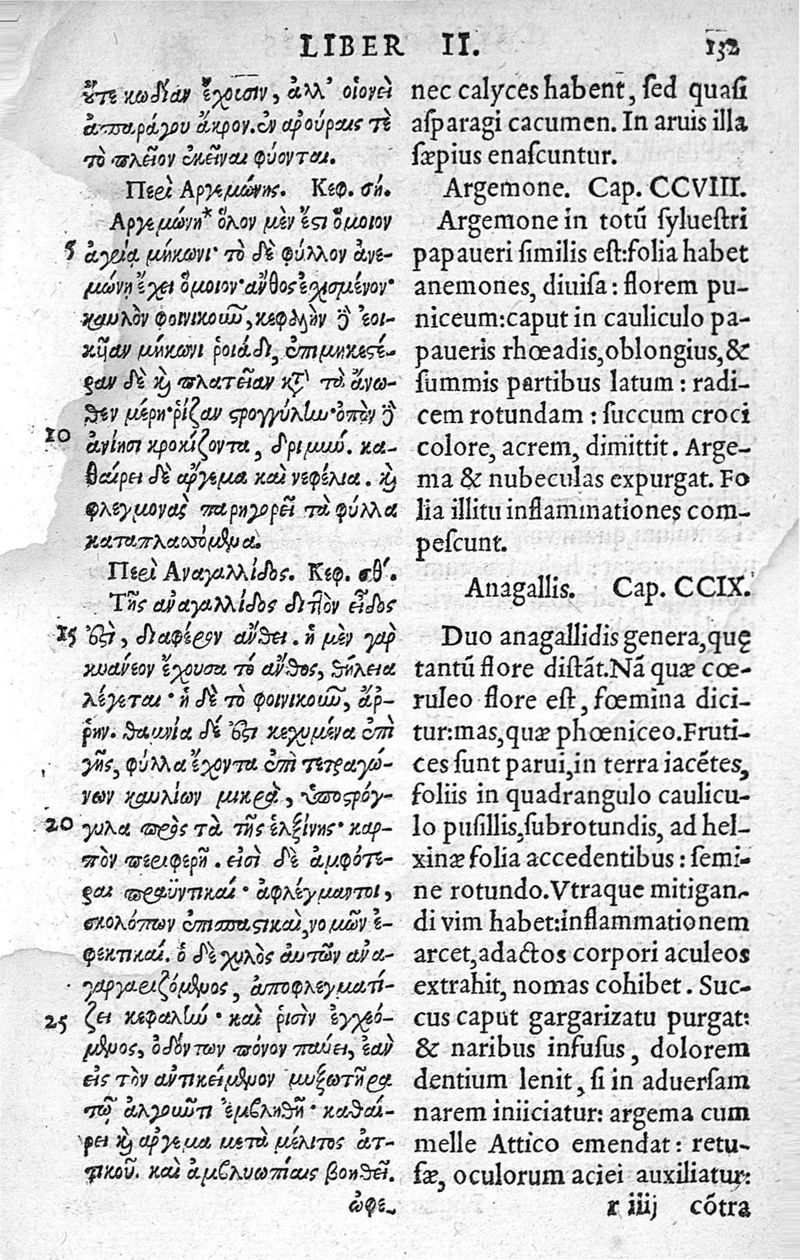 LIBER II. 132
οὔτε κωδίαν ἔχουσιν, ἀλλ' οἱονεὶ
ἀσπαράγου ἄκρον. ἐν ἀρούραις τὲ
τὸ πλεῖον ἐκεῖναι φύονται.
Περὶ Αργεμώνης. Κεφ. σή.
Αργεμώνη* ὅλον μὲν ἔστι ὅμοιον
5 ἀγρίᾳ μήκωνι· τὸ δὲ φύλλον ἀνε-
μώνῃ ἔχει ὅμοιον· ἄνθος ἐχισμένον·
καυλὸν φοινικοῦν, κεφαλὴν δὲ ἐοι-
κῆαν μήκωνι ῥοιάδι, ἐπιμηκεστέ-
ραν δὲ καὶ πλατεῖαν κατὰ τὰ ἄνω-
θεν μέρη· ῥίζαν στρογγύλην· ὀπὸν δὲ
10 ἀνίησι κροκίζοντα, δριμιώ. κα-
θαίρει δὲ ἄργεμα καὶ νεφέλια. καὶ
φλεγμονὰς παρηγορεῖ τὰ φύλλα
καταπλασσόμενα.
Περὶ Αναγαλλίδος. Κεφ. σθ'.
Τῆς ἀναγαλλίδος διττὸν εἶδος
15 ἐστὶ, διαφέρον ἄνθει. ἡ μὲν γὰρ
κυάνεον ἔχουσα τὸ ἄνθος, θήλεια
λέγεται· ἡ δὲ τὸ φοινικοῦν, ἄρ-
ρην. θαμνία δέ ἐστι κεχυμένα ἐπὶ
γῆς, φύλλα ἔχοντα ἐπὶ τετραγώ-
νων καυλίων μικρὰ, ὑποστρόγ-
20 γυλα πρὸς τὰ τῆς ἑλξίνης· καρ-
πὸν περιφερῆ. εἰσὶ δὲ ἀμφότε-
ραι πραϋντικαί· ἀφλέγμαντοι,
σκολόπων ἐπισπαστικαὶ, νομῶν ἐ-
φεκτικαί. ὁ δὲ χυλὸς αὐτῶν ἀνα-
γαργαριζόμενος, ἀποφλεγματί-
25 ζει κεφαλήν· καὶ ῥισὶν ἐγχεό-
μενος, ὀδόντων πόνον παύει, ἐὰν
εἰς τὸν ἀντικείμενον μυξωτῆρα
τῷ ἀλγοῦντι ἐμβληθῇ· καθαί-
ρει καὶ ἄργεμα μετὰ μέλιτος ἀτ-
τικοῦ. καὶ ἀμβλυωπίαις βοηθεῖ.
ὠφε-
nec calyces habent, ſed quaſi
aſparagi cacumen. In aruis illa
ſæpius enaſcuntur.
Argemone. Cap. CCVIII.
Argemone in totū ſylueſtri
papaueri ſimilis eſt:folia habet
anemones, diuiſa: florem pu-
niceum:caput in cauliculo pa-
paueris rhœadis,oblongius,&
ſummis partibus latum: radi-
cem rotundam: ſuccum croci
colore, acrem, dimittit. Arge-
ma & nubeculas expurgat. Fo
lia illitu inflammationes com-
peſcunt.
Anagallis. Cap. CCIX.
Duo anagallidis genera,quę
tantū flore diſtāt.Nā quæ cœ-
ruleo flore eſt, fœmina dici-
tur:mas,quæ phœniceo.Fruti-
ces ſunt parui,in terra iacētes,
foliis in quadrangulo caulicu-
lo puſillis,ſubrotundis, ad hel-
xinæ folia accedentibus: ſemi-
ne rotundo.Vtraque mitigan-
di vim habet:inflammationem
arcet,adactos corpori aculeos
extrahit, nomas cohibet. Suc-
cus caput gargarizatu purgat:
& naribus infuſus, dolorem
dentium lenit, ſi in aduerſam
narem iniiciatur: argema cum
melle Attico emendat: retu-
ſæ, oculorum aciei auxiliatur:
r iiij cōtra